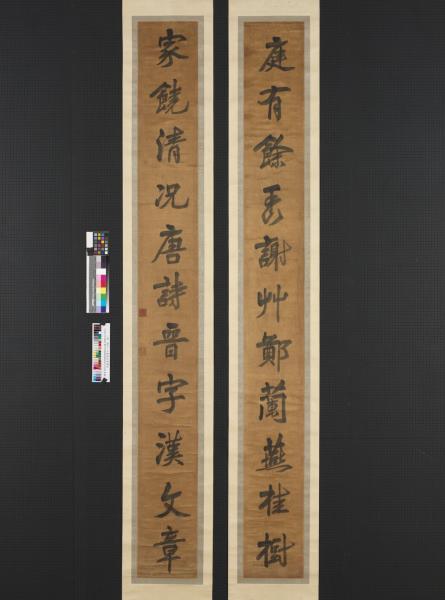 庭有餘香謝艸鄭蘭燕桂樹
家饒清况唐詩晉字漢文章